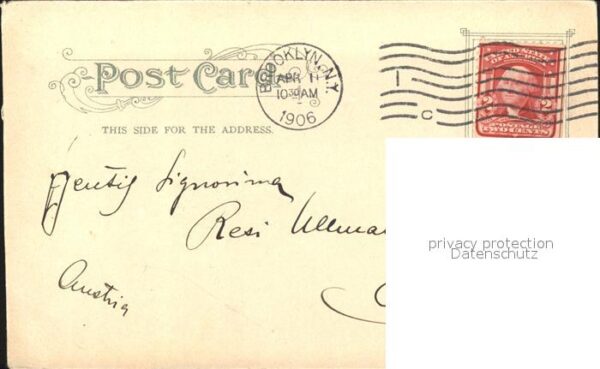 Post Card
BROOKLYN, N.Y.
APR 11
10 30 AM
1906
1
C
UNITED STATES
OF AMERICA
2 2
POSTAGE
TWO CENTS
THIS SIDE FOR THE ADDRESS.
Gentil Signorina
Resi Ullma
Austria
privacy protection
Datenschutz